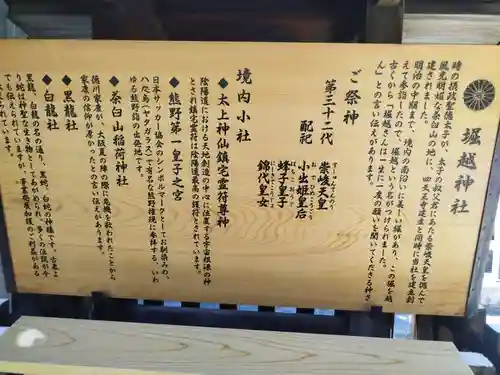 堀越神社
時の摂政聖徳太子が、太子の叔父君にあたる崇峻天皇を偲んで
風光明媚な茶臼山の地に、四天王寺建立と同時に当社を建立創
建されました。
明治の中期まで、境内の南沿いに美しい堀があり、この堀を越
えて参詣したので、堀越という名がつけられました。
古くから「堀越さんは一生に一度の願いを聞いてくださる神さ
ん」との言い伝えがあります。
ご祭神
第三十二代 崇峻天皇
配祀 小出姫皇后
蜂子皇子
錦代皇女
境内小社
◆太上神仙鎮宅霊符尊神
陰陽道における天地創造の中心に位置する宇宙根源の神
とされ鎮宅霊符は陰陽道最高の霊符とされています。
◆熊野第一皇子之宮
日本サッカー協会のシンボルマークとしてお馴染みの、
八咫烏(ヤタガラス)で有名な熊野権現に奉拝する、いわ
ゆる熊野詣の出発地です。
◆茶臼山稲荷神社
徳川家康が、大阪夏の陣の際に危機を救われたことから
家康の信仰が厚かったとの言い伝えがあります。
◆黒龍社
◆白龍社
黒龍、白龍の名の通り、黒蛇、白蛇の神様です。古来よ
り蛇は神聖な生き物としてあがめられ、多くの伝説が今